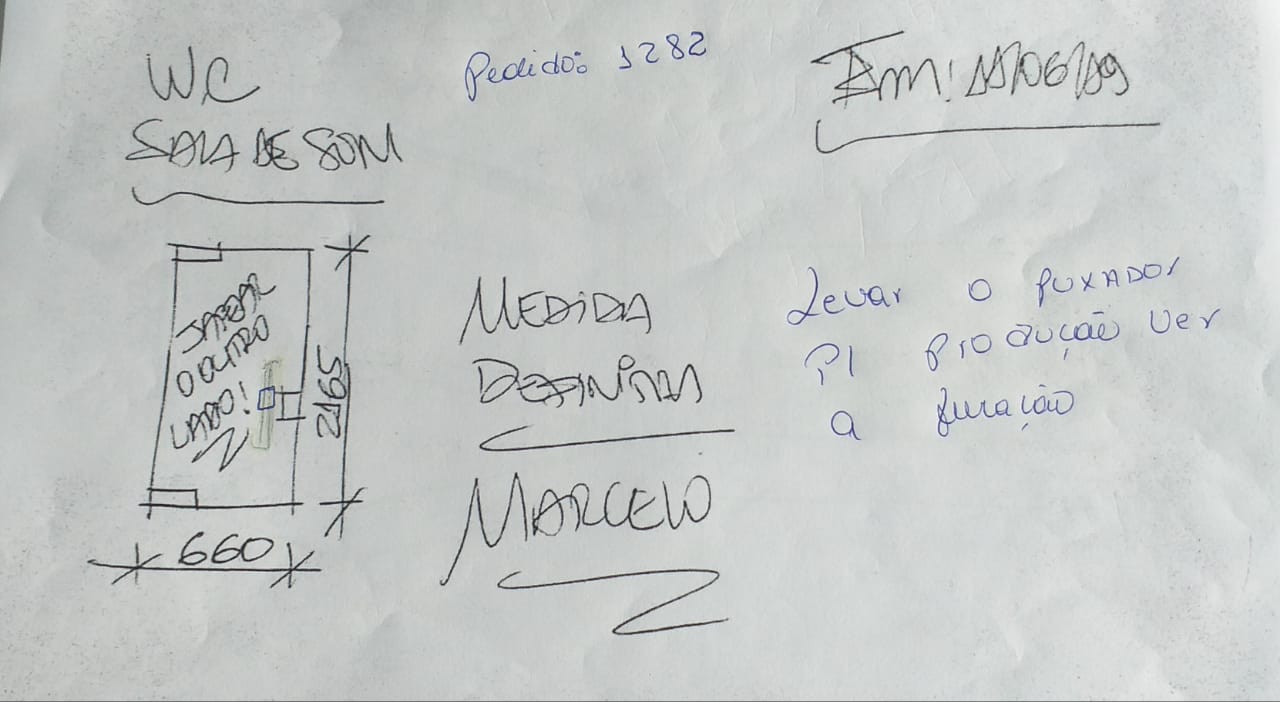 WC
SALA DE SOM
Pedido: 1282
Em: 11/06/19
JATEAR
O OUTRO
LADO!
2165
660
MEDIDA
DEFINIDA
MARCELO
Levar o PUXADOR
P/ produção ver
a furação